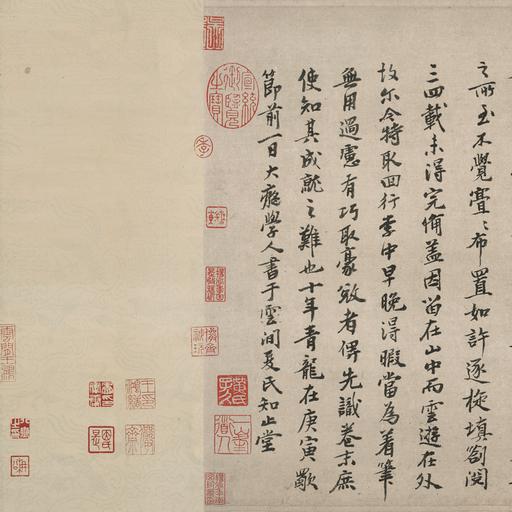 之所至不覺亹〻布置如許逐旋填劄閱
三四載未得完備盖因留在山中而雲遊在外
故尔今特取回行李中早晚得暇當為着筆
無用過慮有巧取豪敓者俾先識卷末庶
使知其成就之難也十年青龍在庚寅歜
節前一日大癡學人書于雲間夏氏知止堂
宣統御覽之寶
黃氏子久
一峯道人